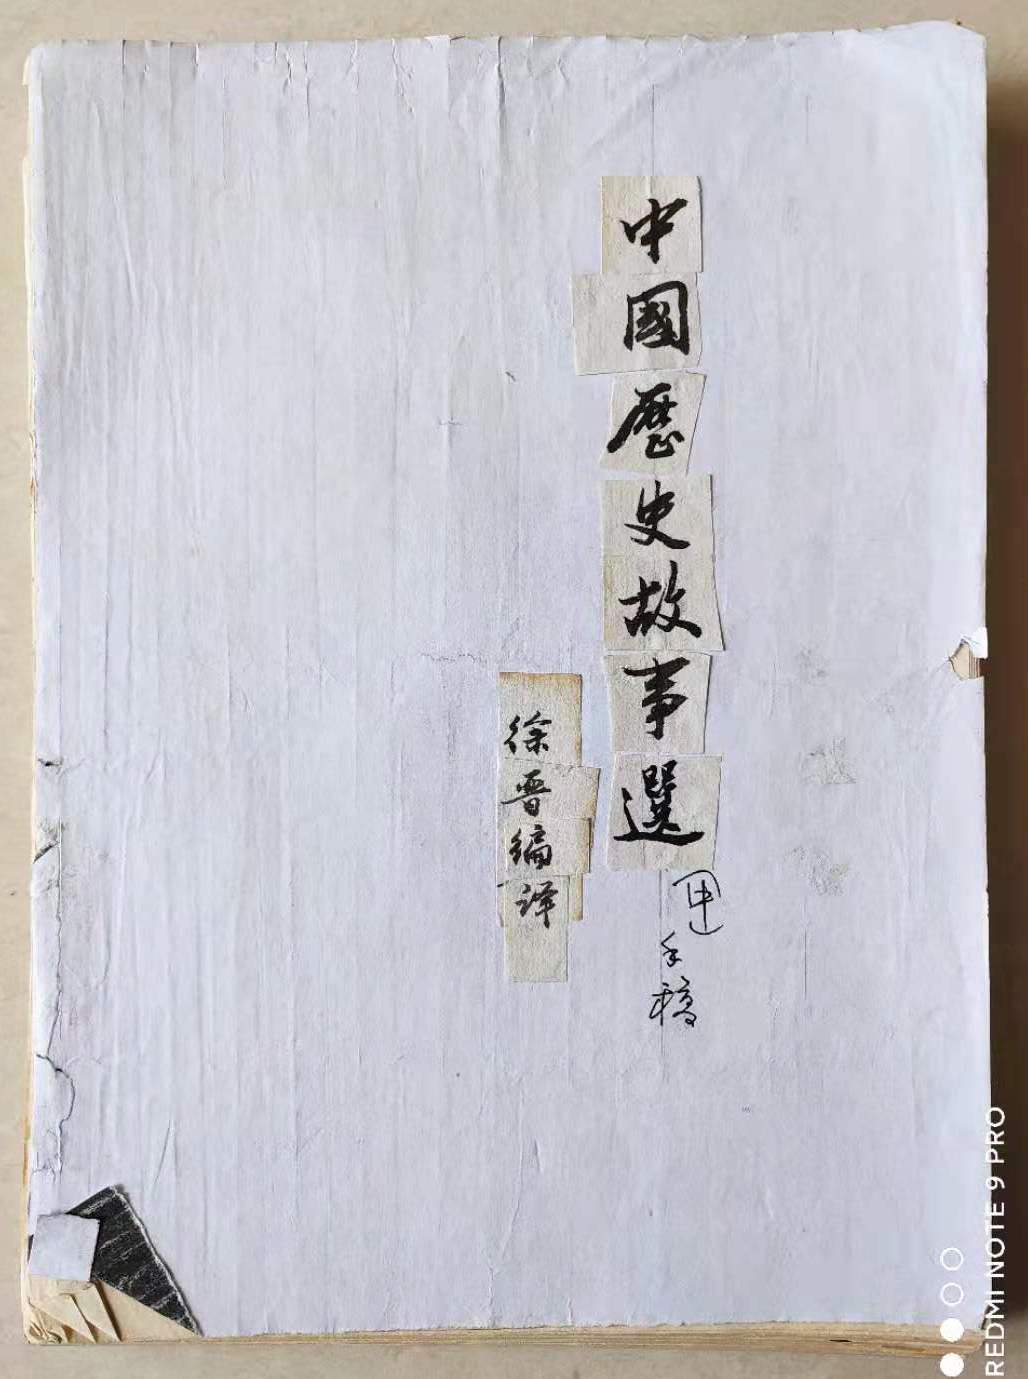 中國歷史故事選
手稿
徐晋编译
REDMI NOTE 9 PRO